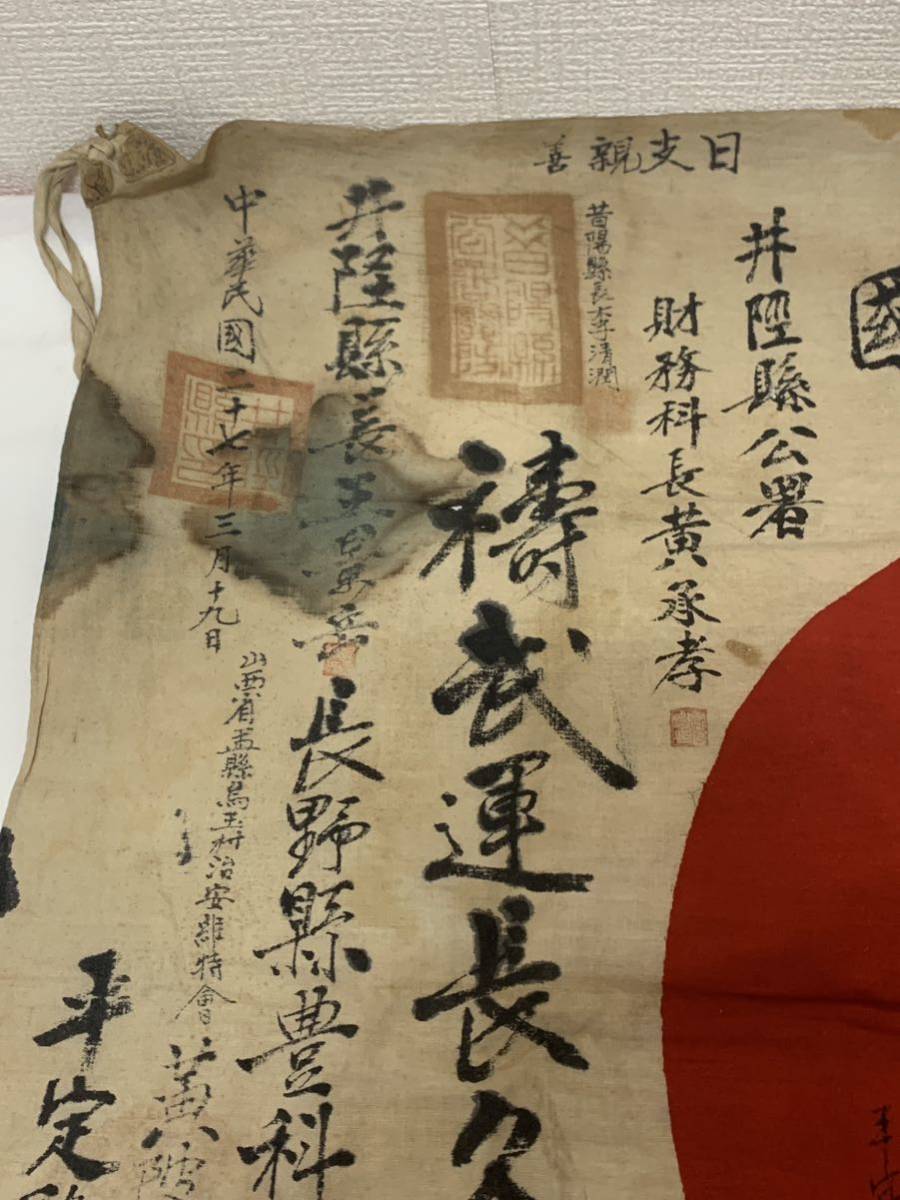 日支親善
國
井陘縣公署
財務科長黄承孝
昔陽縣長李清潤
禱武運長久
井陘縣長王
長野縣豊科
中華民國二十七年三月十九日
山西省盂縣烏玉村治安維持會
黄
平定